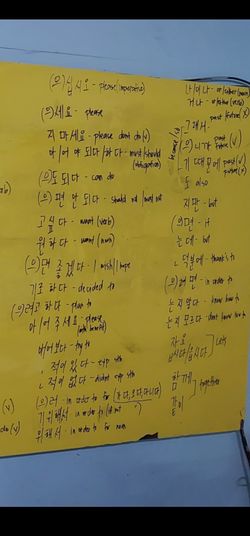 (으)십시오 - please (imperative)
(으)세요 - please
지 마세요 - please don't do (v)
아/어야 되다/하다 - must/should
(obligation)
(으)도 되다 - can do
(으)면 안 되다 - should not / must not
고 싶다 - want (verb)
원하다 - want (noun)
(으)면 좋겠다 - I wish/hope
기로 하다 - decided to
(으)려고 하다 - plan to
아/어 주세요 - please
어보다 - try to
ㄴ 적이 있다 - exp
ㄴ 적이 없다 - didn't exp
(으)러 - in order to for (가다, 오다, 다니다)
기 위해서 - in order to
위해서 - in order to for noun
(v)
do (v)
나/이나 - or
거나 - or
그래서 -
because/so
(으)니까
past (v)
future (v)
기 때문에 past (v)
future (x)
도 also
지만 - but
으면 - if
는데 - but
ㄴ 덕분에 - thanks to
(으)려면 - in order to
는지 알다 - know how to
는지 모르다 - don't know how to
자/요
읍시다/ㅂ시다
Let's
함께
같이
together